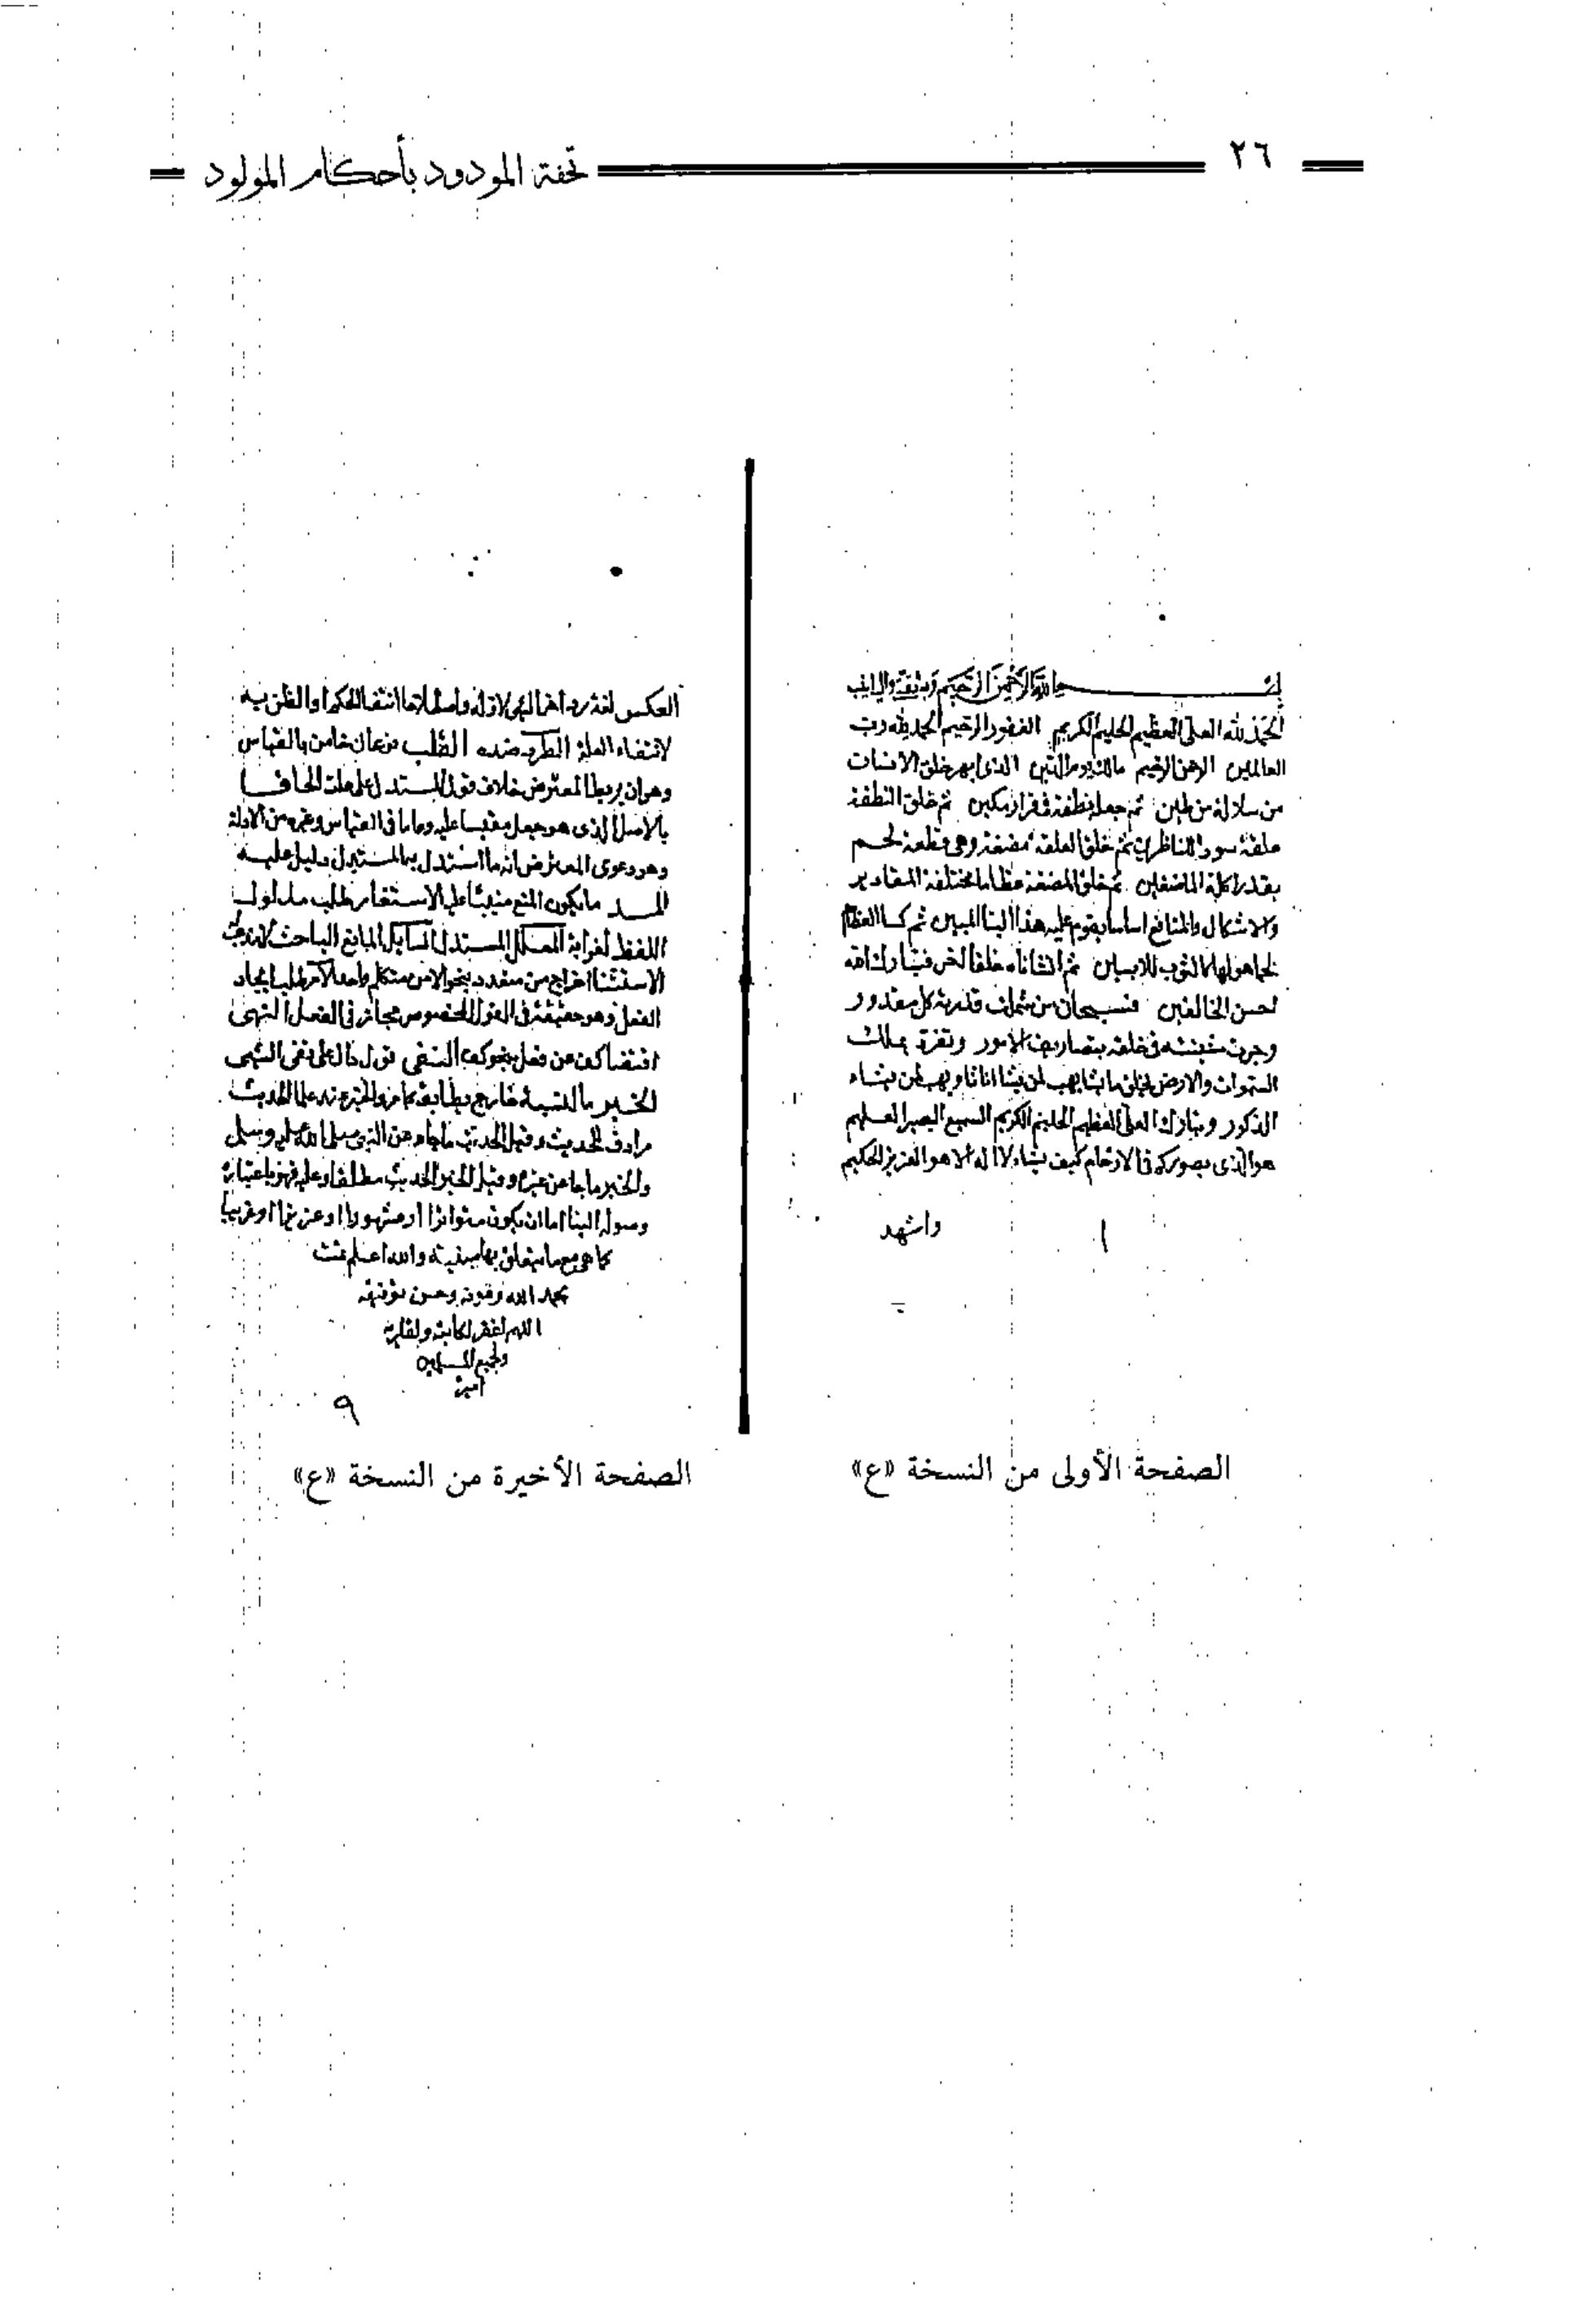 ٢٦
تحفة المودود بأحكام المولود
بسم الله الرحمن الرحيم وبه ثقتي
الحمد لله العلي العظيم الحليم الكريم الغفور الرحيم الحمد لله رب
العالمين الرحمن الرحيم مالك يوم الدين الذي ابهر خلق الانسان
من سلالة من طين ثم جعله نطفة في قرار مكين ثم خلق النطفة
علقة سوداء للناظرين ثم خلق العلقة مضغة وهي قطعة لحم
بقدر اكلة الماضغين ثم خلق المضغة عظاما مختلفة المقادير
والاشكال والمنافع اساسا يقوم عليه هذا البنا المبين ثم كسا العظام
لحما هو لها كالثوب للابسين ثم انشاناه خلقا اخر فتبارك الله
احسن الخالقين فسبحان من شملت قدرته كل مقدور
وجرت مشيئته في خلقه بتصاريف الامور وتفرد بملك
السموات والارض يخلق ما يشا يهب لمن يشا اناثا ويهب لمن يشاء
الذكور وتبارك العلي العظيم الحليم الكريم السميع البصير العليم
هو الذي يصوركم في الارحام كيف يشاء لا اله الا هو العزيز الحكيم
واشهد
١
الصفحة الأولى من النسخة «ع»
العكس لغة رد
لانتفاء العلة الطرد ضده القلب
وهو ان يربط المعترض خلاف قول المستدل على علته
بالاصل الذي هو جعل مقيسا عليه
وهو دعوى المعترض ان ما استدل به المستدل دليل عليه
ما يكون المنع مبنيا عليه الاستفسار طلب مدلول
اللفظ لغرابة
الاستثنا اخراج من متعدد بنحو الا من متكلم واحد الامر طلب ايجاد
الفعل وهو حقيقة في القول المخصوص مجاز في الفعل النهي
اقتضا كف عن فعل بنحو كف النفي قول دال على نفي الشي
الخبر ما لنسبته خارج يطابقه
مرادف للحديث وقيل الحديث ما جاء عن النبي صلى الله عليه وسلم
والخبر ما جا عن غيره وقيل الخبر الحديث مطلقا وعليه فهو باعتبار
وصوله الينا اما ان يكون متواترا او مشهورا او عزيزا او غريبا
كما هي مع ما يتعلق بها مبينة والله اعلم تمت
بحمد الله وعونه وحسن توفيقه
اللهم اغفر لكاتبه ولقاريه
ولجميع المسلمين
امين
٩
الصفحة الأخيرة من النسخة «ع»